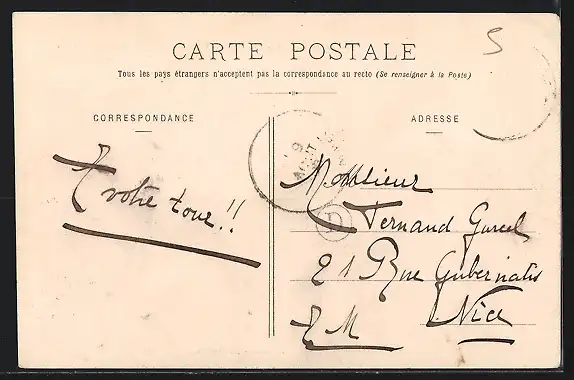 CARTE POSTALE
Tous les pays étrangers n'acceptent pas la correspondance au recto (Se renseigner à la Poste)
CORRESPONDANCE
ADRESSE
A votre tour!!
5
9
AOUT
Monsieur
Fernand Garcel
21 Rue Gubernatis
Nice
E M